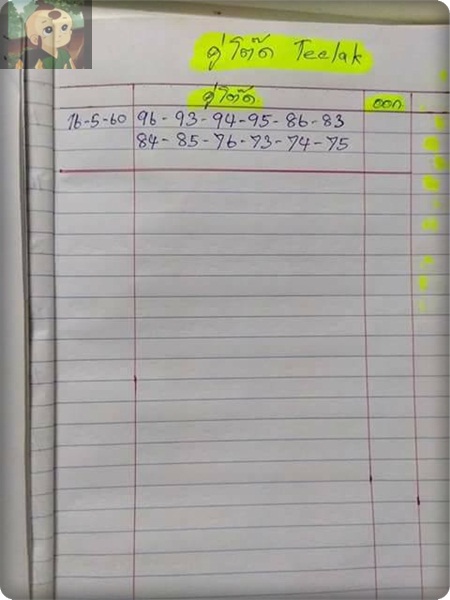 คู่โต๊ด Teelak
คู่โต๊ด ออก
16-5-60 96-93-94-95-86-83
84-85-76-73-74-75